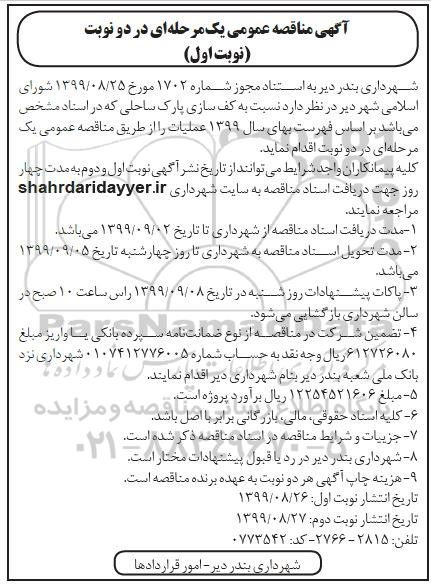 آگهی مناقصه عمومی یک‌مرحله‌ای در دو نوبت
(نوبت اول)
شهرداری بندر دیر به استناد مجوز شماره ۱۷۰۲ مورخ ۱۳۹۹/۰۸/۲۵ شورای
اسلامی شهر دیر در نظر دارد نسبت به کف سازی پارک ساحلی که در اسناد مشخص
می‌باشد بر اساس فهرست بهای سال ۱۳۹۹ عملیات را از طریق مناقصه عمومی یک
مرحله‌ای در دو نوبت اقدام نماید.
کلیه پیمانکاران واجد شرایط می‌توانند از تاریخ نشر آگهی نوبت اول و دوم به مدت چهار
روز جهت دریافت اسناد مناقصه به سایت شهرداری shahrdaridayyer.ir
مراجعه نمایند.
۱-مدت دریافت اسناد مناقصه از شهرداری تا تاریخ ۱۳۹۹/۰۹/۰۲ می‌باشد.
۲-مدت تحویل اسناد مناقصه به شهرداری تا روز چهارشنبه تاریخ ۱۳۹۹/۰۹/۰۵
می‌باشد.
۳-پاکات پیشنهادات روز شنبه در تاریخ ۱۳۹۹/۰۹/۰۸ راس ساعت ۱۰ صبح در
سالن شهرداری بازگشایی می‌شود.
۴- تضمین شرکت در مناقصه از نوع ضمانت‌نامه سپرده بانکی یا واریز مبلغ
۶۱۲۷۲۶۰۸۰ ریال وجه نقد به حساب شماره ۰۱۰۷۴۱۲۷۷۶۰۰۵ شهرداری نزد
بانک ملی شعبه بندر دیر بنام شهرداری دیر اقدام نمایند.
۵-مبلغ ۱۲۲۵۴۵۲۱۶۰۶ ریال برآورد پروژه است.
۶- کلیه اسناد حقوقی، مالی، بازرگانی برابر با اصل باشد.
۷- جزییات و شرایط مناقصه در اسناد مناقصه ذکر شده است.
۸-شهرداری بندر دیر در رد یا قبول پیشنهادات مختار است.
۹-هزینه چاپ آگهی هر دو نوبت به عهده برنده مناقصه است.
تاریخ انتشار نوبت اول: ۱۳۹۹/۰۸/۲۶
تاریخ انتشار نوبت دوم: ۱۳۹۹/۰۸/۲۷
تلفن: ۲۸۱۵ -۲۷۶۶-کد: ۰۷۷۳۵۴۲
شهرداری بندر دیر-امور قراردادها